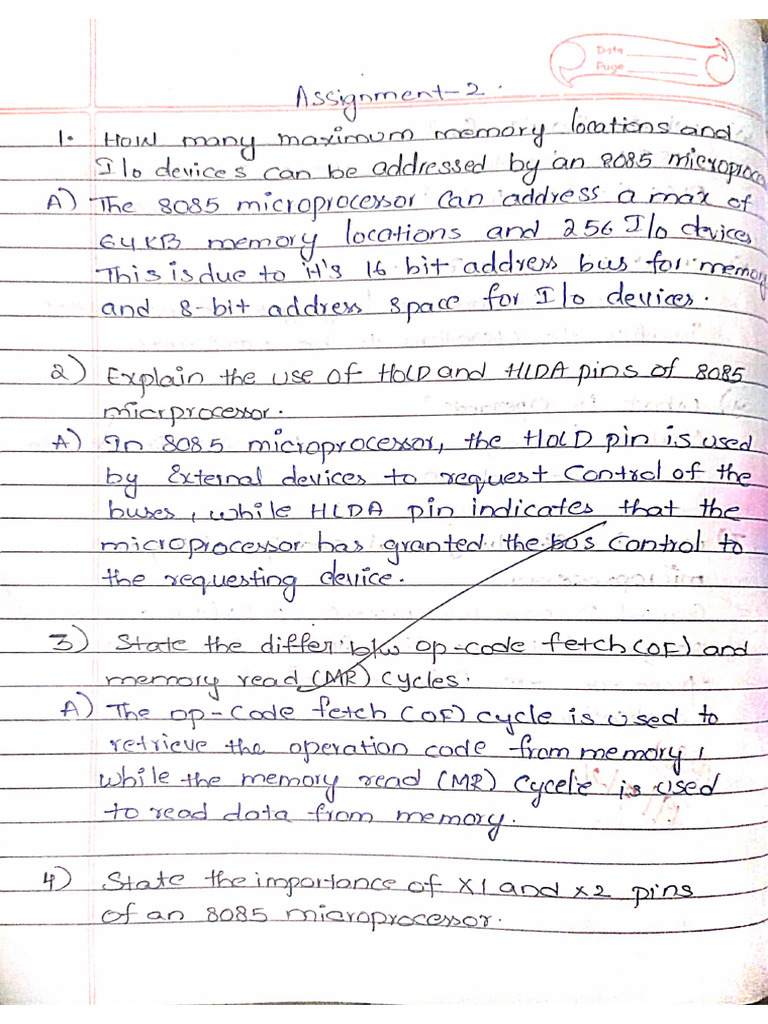 Date
Page
Assignment-2.
1. How many maximum memory locations and
I/o devices can be addressed by an 8085 microproce
A) The 8085 microprocessor can address a max of
64KB memory locations and 256 I/o devices
This is due to it's 16 bit address bus for memory
and 8-bit address space for I/o devices.
2) Explain the use of HOLD and HLDA pins of 8085
micrprocessor.
A) In 8085 microprocessor, the HOLD pin is used
by External devices to request Control of the
buses, while HLDA pin indicates that the
microprocessor has granted the bus control to
the requesting device.
3) State the differ b/w op-code fetch (OF) and
memory read (MR) cycles.
A) The op-code fetch (OF) cycle is used to
retrieve the operation code from memory,
while the memory read (MR) Cycele is used
to read data from memory.
4) State the importance of X1 and X2 pins
of an 8085 microprocessor.